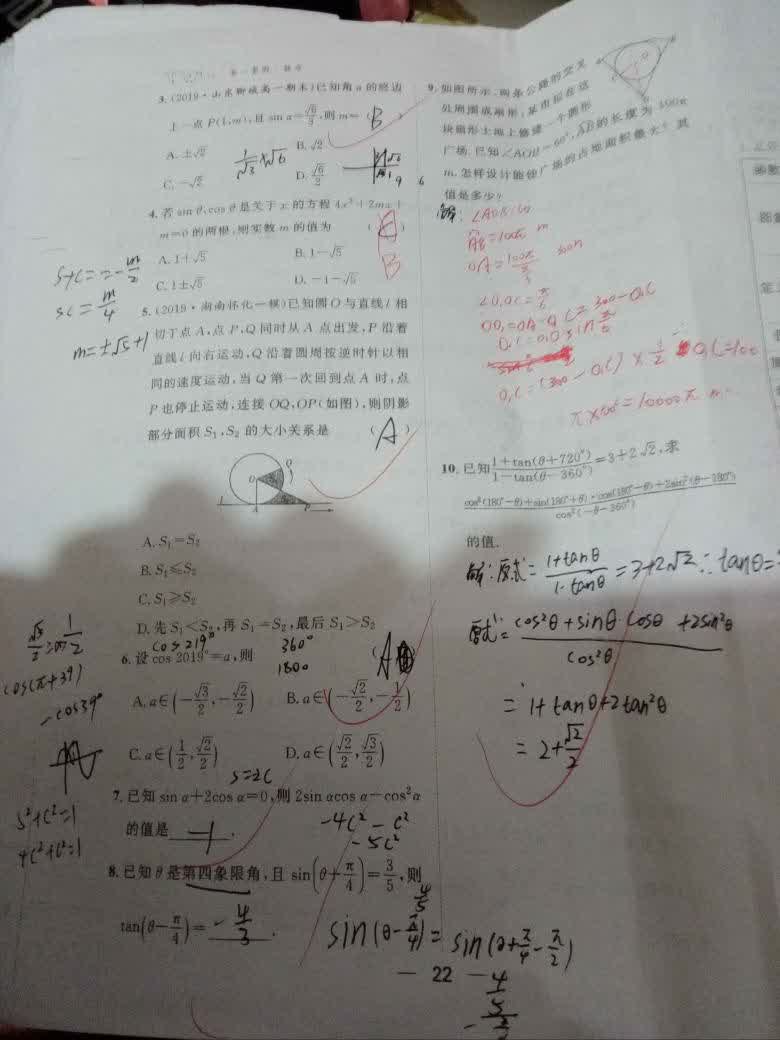 3. (2019·山东聊城高一期末)已知角α的终边
上一点P(1,m),且sin α=√6/3,则m=( B )
A. ±√2
B. √2
C. -√2
D. √6/2
4. 若sin θ,cos θ是关于x的方程4x²+2mx+
m=0的两根,则实数m的值为 ( )
B
A. 1+√5
B. 1-√5
C. 1±√5
D. -1-√5
s+c=-m/2
sc=m/4
m=±√5+1
5. (2019·湖南怀化一模)已知圆O与直线l相
切于点A,点P,Q同时从A点出发,P沿着
直线l向右运动,Q沿着圆周按逆时针以相
同的速度运动,当Q第一次回到点A时,点
P也停止运动,连接OQ,OP(如图),则阴影
部分面积S₁,S₂的大小关系是 ( A )
O
Q
l
A
P
A. S₁=S₂
B. S₁≤S₂
C. S₁≥S₂
D. 先S₁<S₂,再S₁=S₂,最后S₁>S₂
cos219° 360°
6. 设cos 2019°=a,则 ( A )
1800
A. a∈(-√3/2,-√2/2)
B. a∈(-√2/2,-1/2)
C. a∈(1/2,√2/2)
D. a∈(√2/2,√3/2)
cos(π+39)
-cos39°
s=2c
7. 已知sin α+2cos α=0,则2sin αcos α-cos²α
的值是 -1 .
-4c²-c²
-5c²
s²+c²=1
4c²+c²=1
8. 已知θ是第四象限角,且sin(θ+π/4)=3/5,则
tan(θ-π/4)= -4/3 .
4/5
sin(θ-π/4)=sin(θ+π/4-π/2)
— 22 —
9. 如图所示,两条公路的交叉
处周围成扇形,某市拟在这
块扇形土地上修建一个圆形
广场.已知∠AOB=60°,AB的长度为100π
m.怎样设计能使广场的占地面积最大?其
值是多少?
解:∠AOB=60
AB=100π m
300m
∠O₁OC=π/6
OO₁=OA-O₁C=300-O₁C
O₁C=OO₁sinπ/6
O₁C=(300-O₁C)×1/2 O₁C=100
π×100²=10000π m
10. 已知1+tan(θ+720°)/1-tan(θ-360°)=3+2√2,求
cos²(180°-θ)+sin(180°+θ)·cos(180°-θ)+2sin²(θ-180°)/cos²(-θ-360°)
的值.
解:原式=1+tanθ/1-tanθ=3+2√2∴tanθ=
原式=cos²θ+sinθ·cosθ+2sin²θ/cos²θ
=1+tanθ+2tan²θ
=2+√2/2